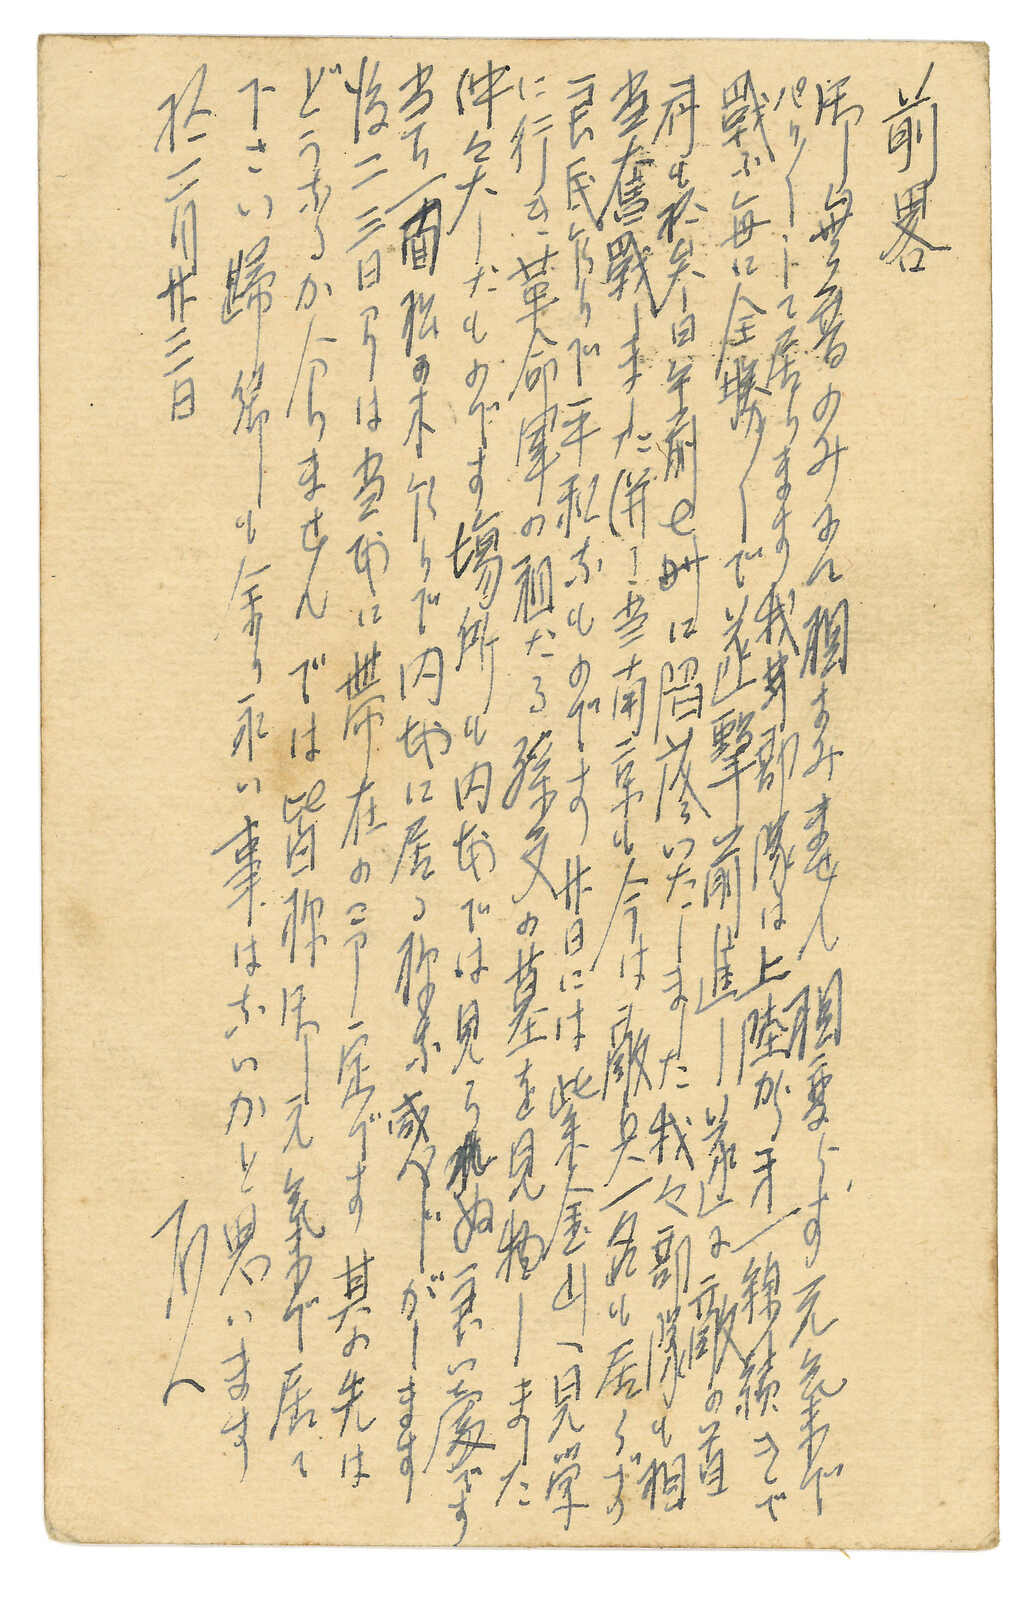 前畧
御無音のみに相すみません 相変らず元気で
パリーして居ります 我等部隊は上陸がら第一線続きで
戦ふ毎に全勝〳〵で追撃前進し遂に敵の首
府も去る十三日午前七時に陥落いたしました 我々部隊も相
当奮戦しました(併し当南京も今は敵兵一名も居らず
良民許りで平和なものです 廿日には紫金山へ見学
に行き革命軍の祖たる孫文の墓を見物しました
仲々大したものです 場所も内地では見られぬ良い處です
当方一面松の木許りで内地に居る様な感じがします
後二三日間は当地に滞在の予定です 其の先は
どうなるか分りません では皆様御元気で居て
下さい 歸郷も余り永い事はないかと思います
拾二月廿三日